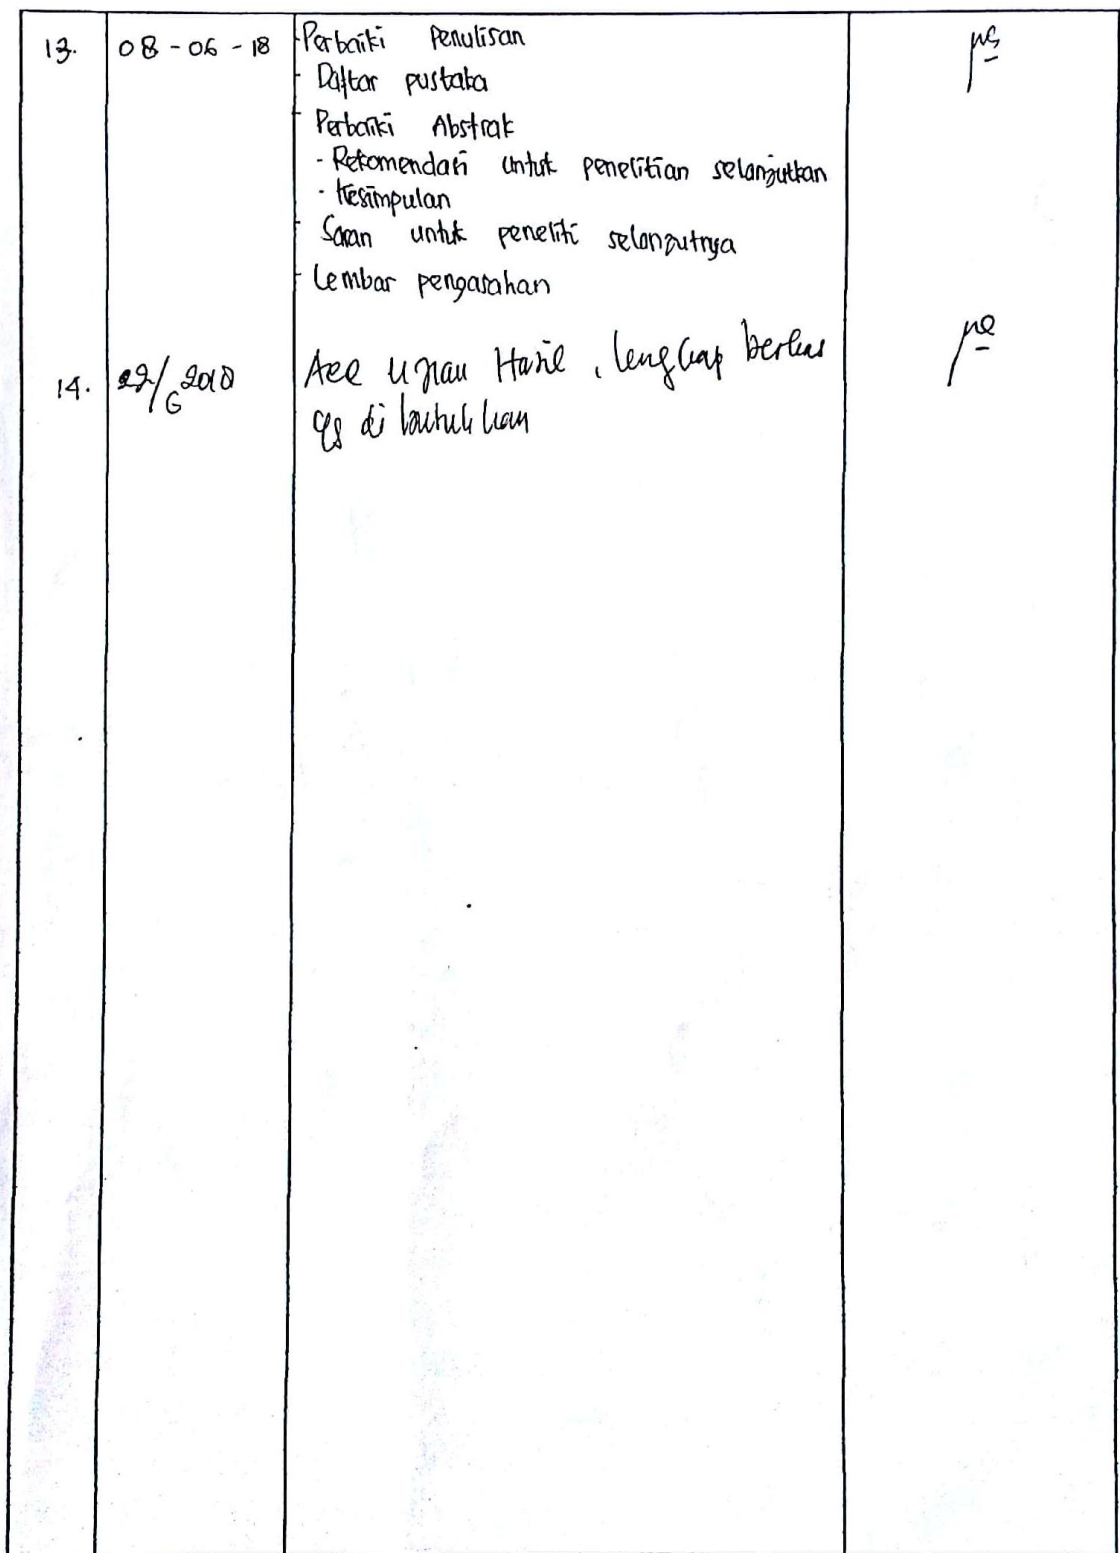 13. 08-06-18 - Perbaiki Penulisan
- Daftar pustaka
- Perbaiki Abstrak
- Rekomendasi untuk penelitian selanjutkan
- Kesimpulan
- Saran untuk peneliti selanjutnya
- Lembar pengasahan
14. 22/6 2018 Acc Ujian Hasil, lengkapi berkas
yg di butuhkan